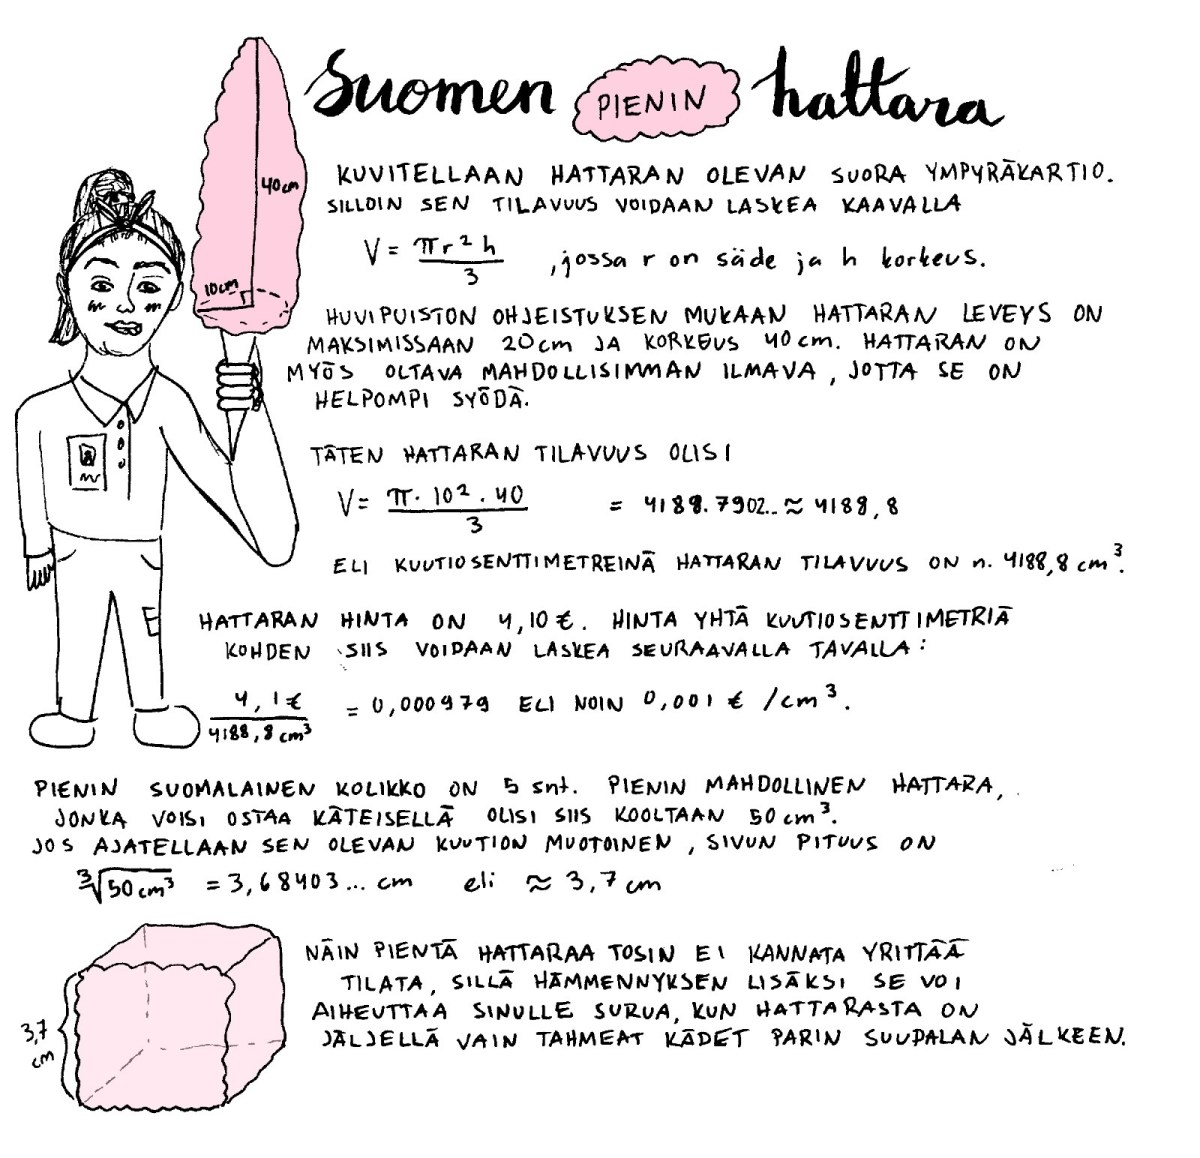 Suomen PIENIN hattara
40cm
10cm
KUVITELLAAN HATTARAN OLEVAN SUORA YMPYRÄKARTIO.
SILLOIN SEN TILAVUUS VOIDAAN LASKEA KAAVALLA
V = πr²h / 3 , jossa r on säde ja h korkeus.
HUVIPUISTON OHJEISTUKSEN MUKAAN HATTARAN LEVEYS ON
MAKSIMISSAAN 20cm JA KORKEUS 40cm. HATTARAN ON
MYÖS OLTAVA MAHDOLLISIMMAN ILMAVA, JOTTA SE ON
HELPOMPI SYÖDÄ.
TÄTEN HATTARAN TILAVUUS OLISI
V = π · 10² · 40 / 3 = 4188.7902.. ≈ 4188,8
ELI KUUTIOSENTTIMETREINÄ HATTARAN TILAVUUS ON n. 4188,8 cm³.
HATTARAN HINTA ON 4,10 €. HINTA YHTÄ KUUTIOSENTTIMETRIÄ
KOHDEN SIIS VOIDAAN LASKEA SEURAAVALLA TAVALLA:
4,1€ / 4188,8 cm³ = 0,000979 ELI NOIN 0,001 € /cm³.
PIENIN SUOMALAINEN KOLIKKO ON 5 snt. PIENIN MAHDOLLINEN HATTARA,
JONKA VOISI OSTAA KÄTEISELLÄ OLISI SIIS KOOLTAAN 50 cm³.
JOS AJATELLAAN SEN OLEVAN KUUTION MUOTOINEN, SIVUN PITUUS ON
∛50cm³ = 3,68403... cm eli ≈ 3,7 cm
NÄIN PIENTÄ HATTARAA TOSIN EI KANNATA YRITTÄÄ
TILATA, SILLÄ HÄMMENNYKSEN LISÄKSI SE VOI
AIHEUTTAA SINULLE SURUA, KUN HATTARASTA ON
JÄLJELLÄ VAIN TAHMEAT KÄDET PARIN SUUPALAN JÄLKEEN.
3,7
cm